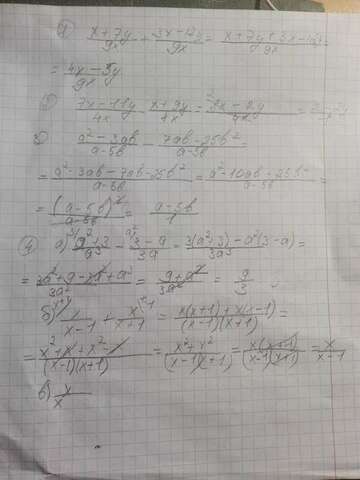 (x + 7y)/9x + (3x - 12y)/9x = (x + 7y + 3x - 12y)/9x =
= (4x - 5y)/9x
(7x - 11y)/4x - (x - 9y)/4x =
(a² - 3ab)/(a - 5b) - (7ab - 25b²)/(a - 5b) =
= (a² - 3ab - 7ab - 25b²)/(a - 5b) = (a² - 10ab - 25b²)/(a - 5b) =
= (a - 5b)²/(a - 5b) = (a - 5b)/1
4) а) (a² + 3)/a³ - (3 - a)/3a = (3(a² + 3) - a²(3 - a))/3a³ =
= (3a² + 9 - 3a² + a³)/3a² = (9 + a³)/3a³ = 9/3
б) /(x - 1) + x/(x + 1) = (x(x + 1) + x(x - 1))/((x - 1)(x + 1)) =
= (x² + x + x² - x)/((x - 1)(x + 1)) = (x² + x²)/((x - 1)(x + 1)) = (x(x + 1))/((x - 1)(x + 1)) = x/(x - 1)
в) /x